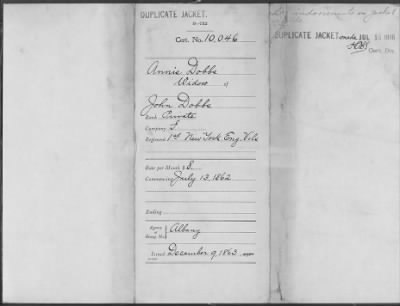 DUPLICATE JACKET.
Cert. No. 10,046
Annie Dobbs
Widow of
John Dobbs
Rank Private
Company F
Regiment 1st New York Eng. Vols
Rate per Month $ 8
Commencing July 13, 1862
Ending
Agency
or
Group No.
Albany
Issued December 9, 1863
indorsements on jacket
DUPLICATE JACKET made JUL
Cert. Div.